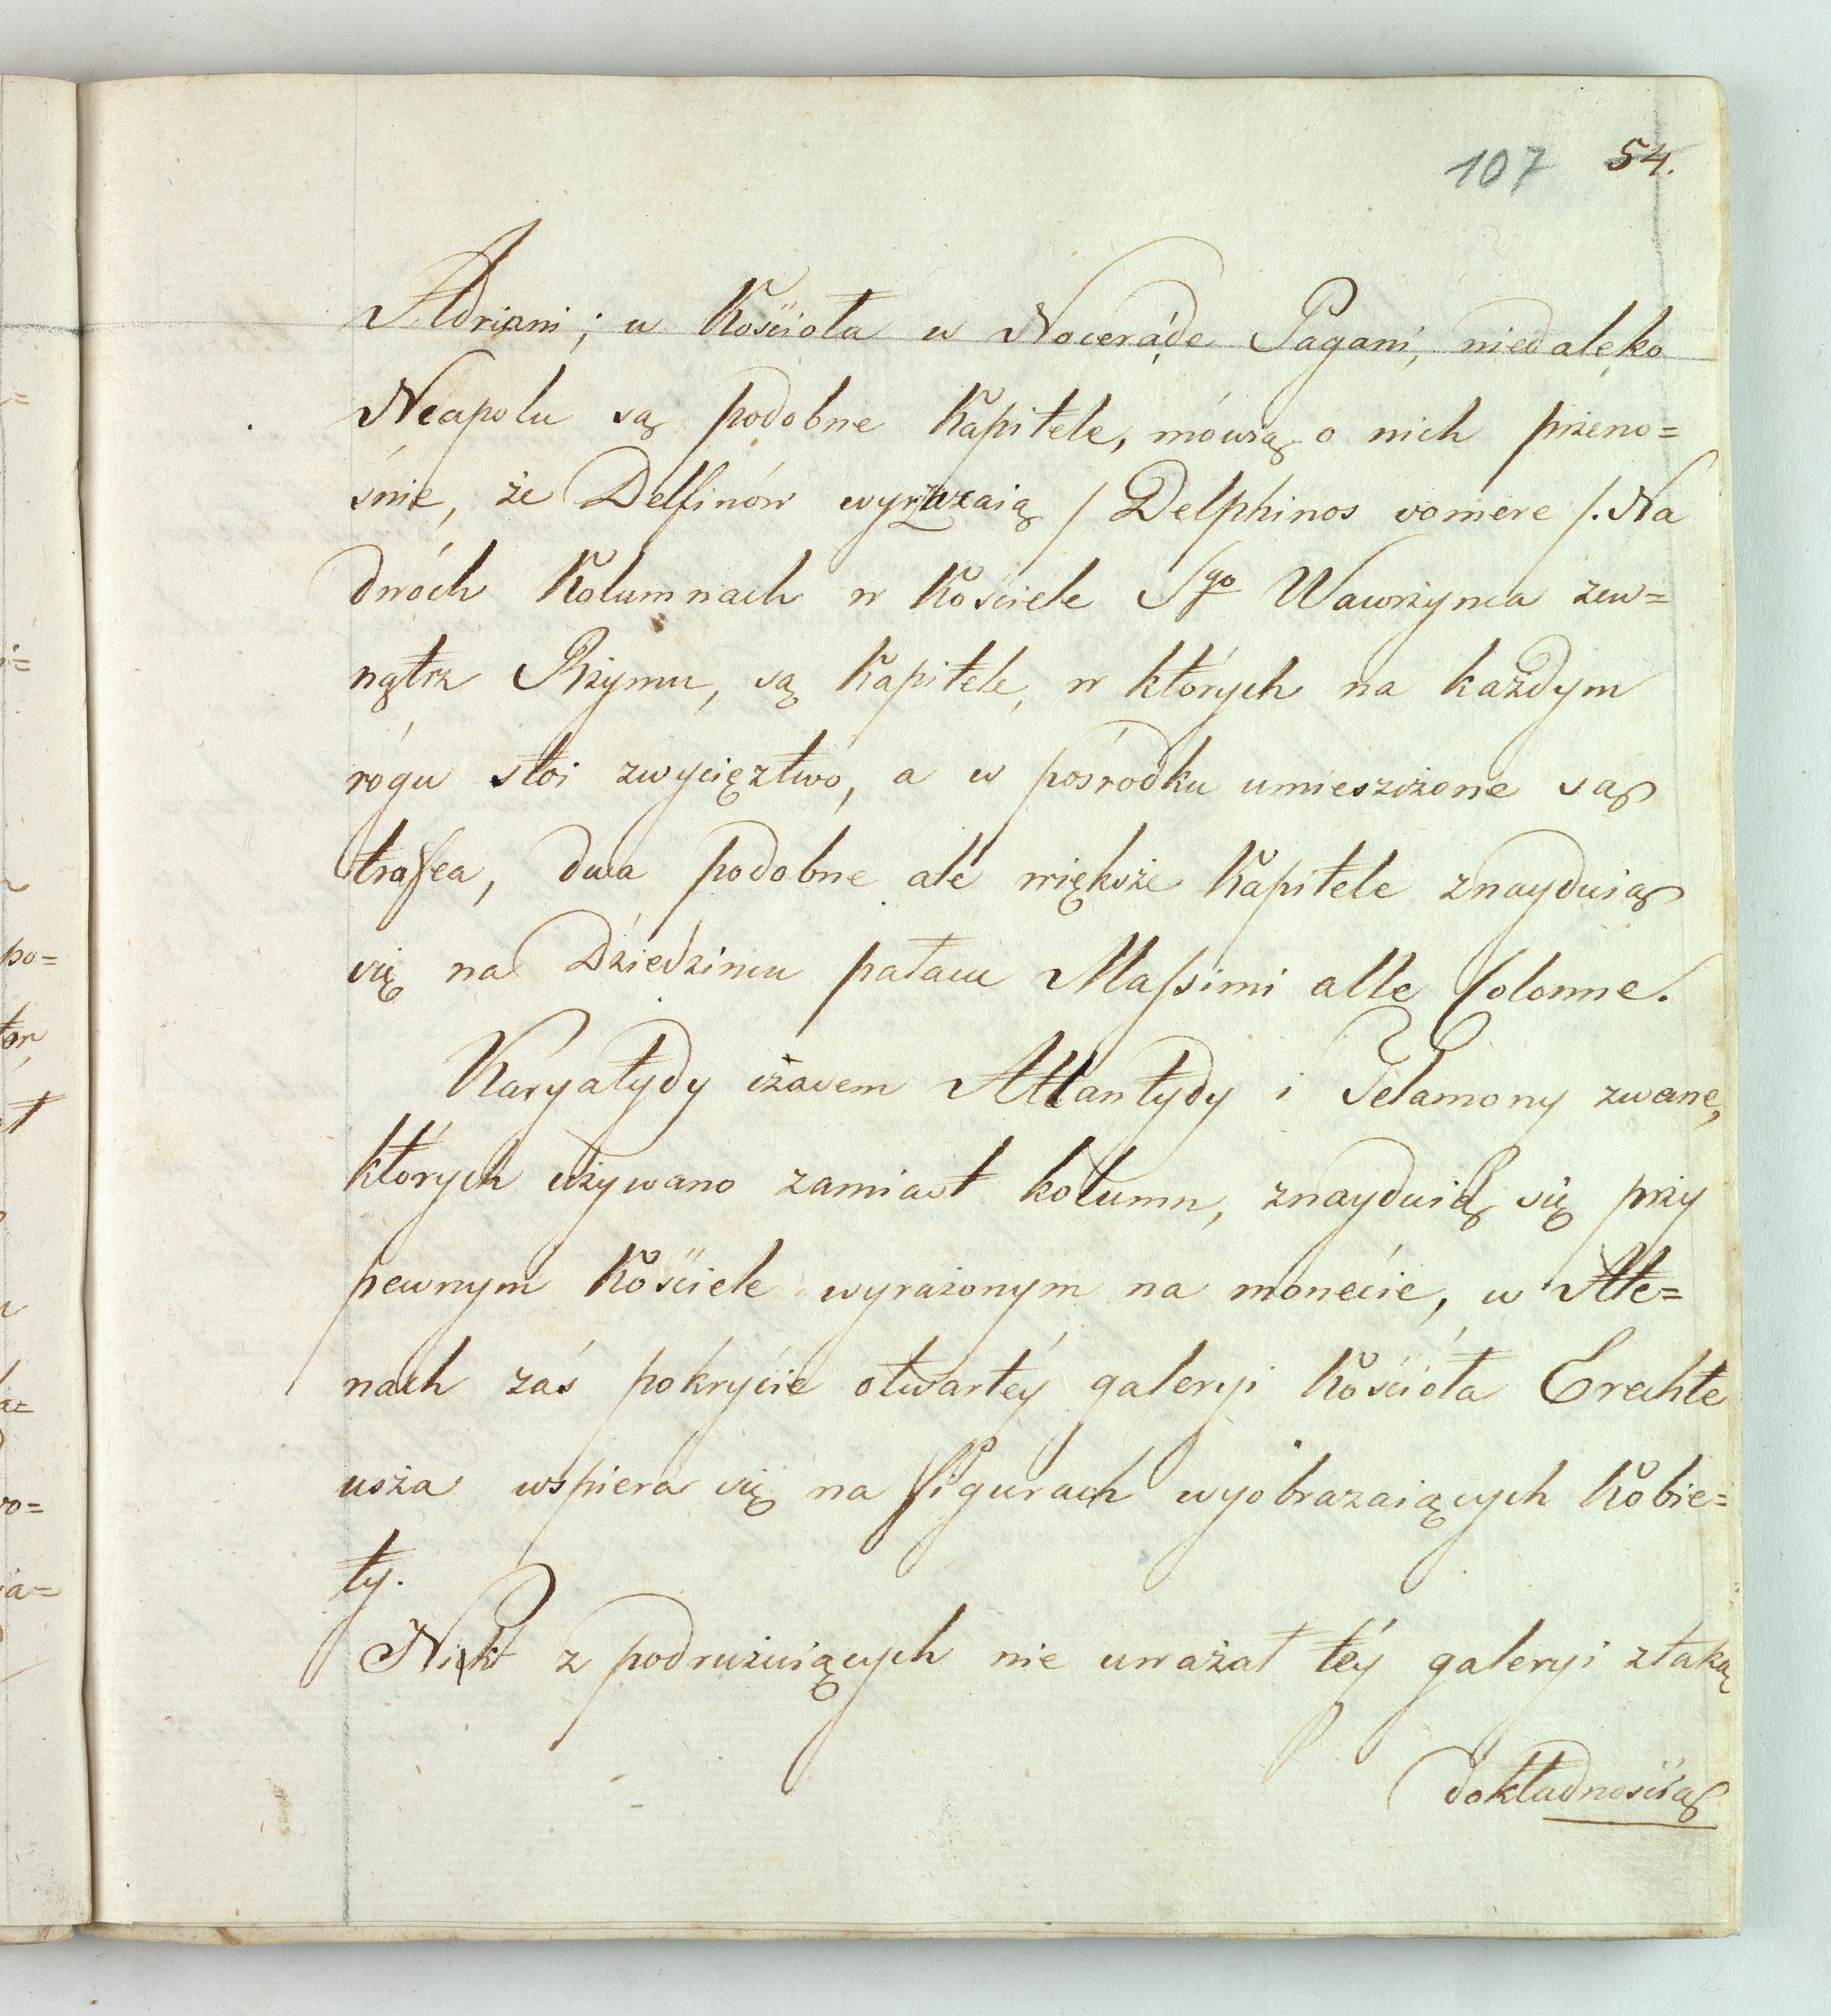 107 54.
Adriani; u Kościoła w Nocera de Pagani, niedaleko
Neapolu są podobne Kapitele, mówią o nich przeno=
śnie, że Delfinów wyrzucaią / Delphinos vomere /. Na
dwóch Kolumnach w Kościele Sgo Wawrzynca zew=
nątrz Rzymu, są Kapitele, w których na każdym
rogu stoi zwycięztwo, a w pośrodku umieszczone są
trofea, dwa podobne ale większe Kapitele znayduią
się na Dziedzincu pałacu Massimi alle Colonne.
Karyatydy czasem Atlantydy i Telamony zwane,
których używano zamiast kolumn, znayduią się przy
pewnym Kościele wyrażonym na monecie, w Ate=
nach zaś pokrycie otwartéy galeryi Kościoła Erechte
usza wspiera się na figurach wyobrazaiących Kobie=
ty.
Nikt z podrużuiących nie uważał téy galeryi ztaką
dokładnością
=
i=
po=
tor
a=
wo=
ia=